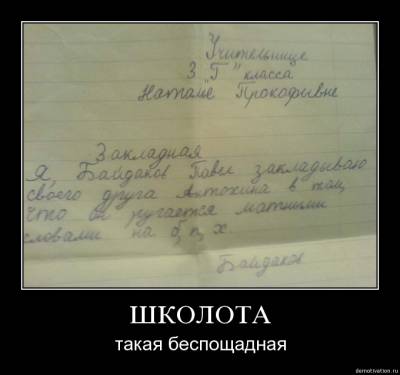 Учительнице
3 "Г" класса
Наташе Прокофьвне
Закладная
Я, Байдаков Павел закладываю
своего друга Антохина в том,
что он ругается матными
словами на б, п, х.
Байдаков
ШКОЛОТА
такая беспощадная
demotivation.ru